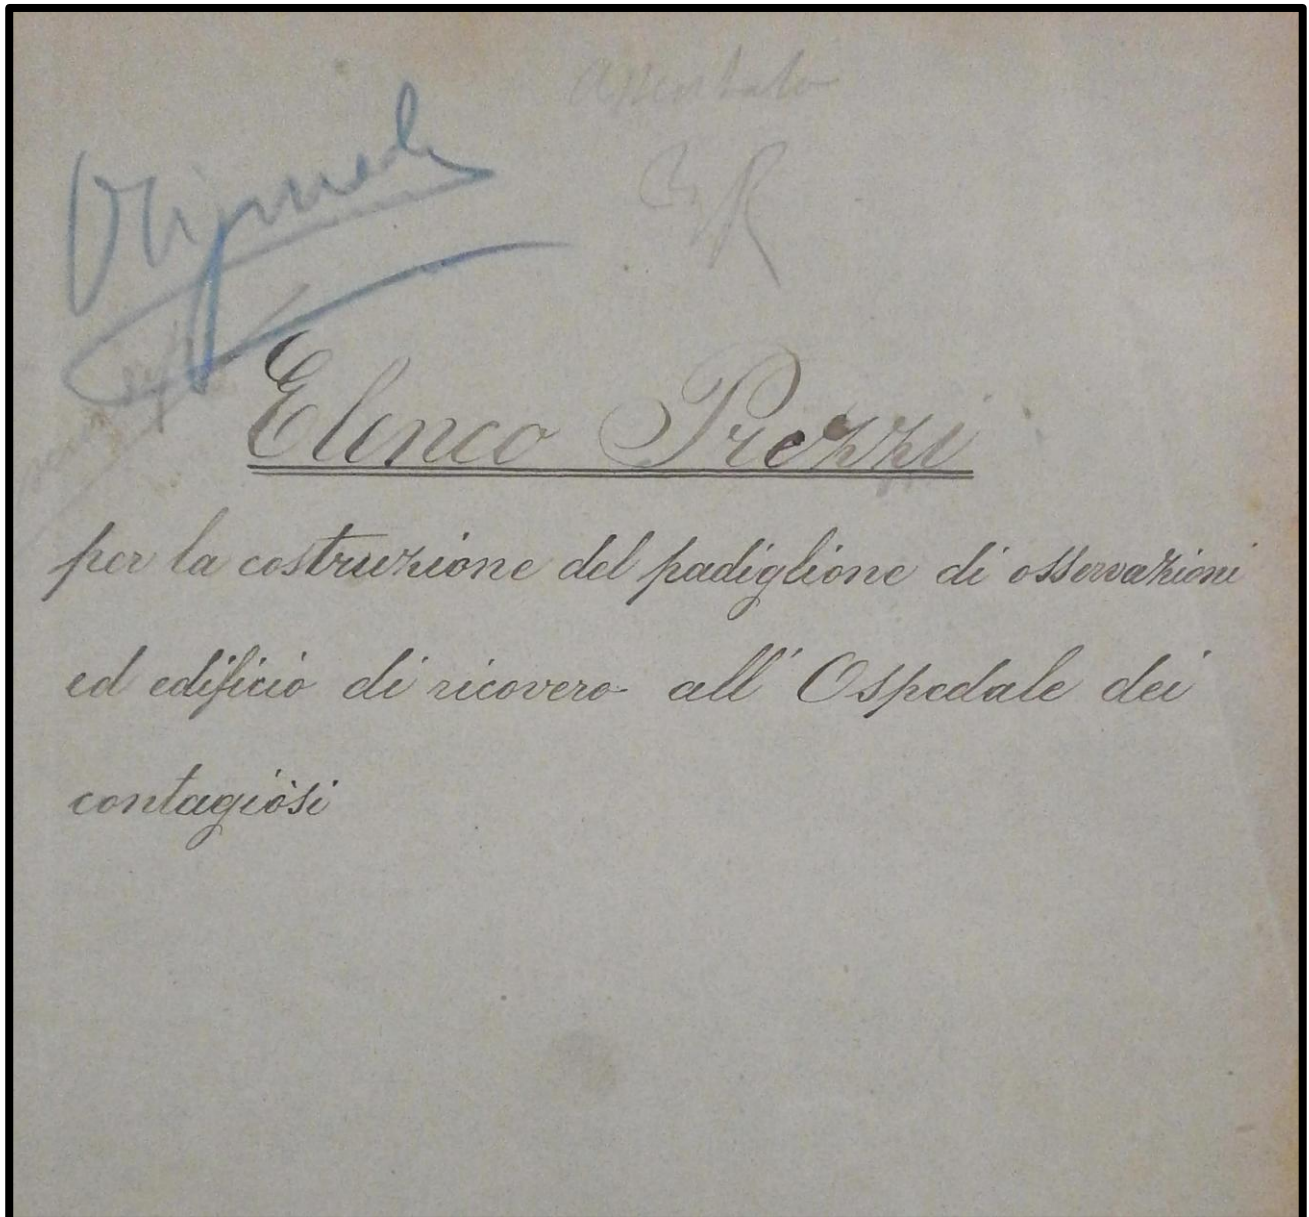 Elenco Prezzi
per la costruzione del padiglione di osservazioni
ed edificio di ricovero all' Ospedale dei
contagiosi